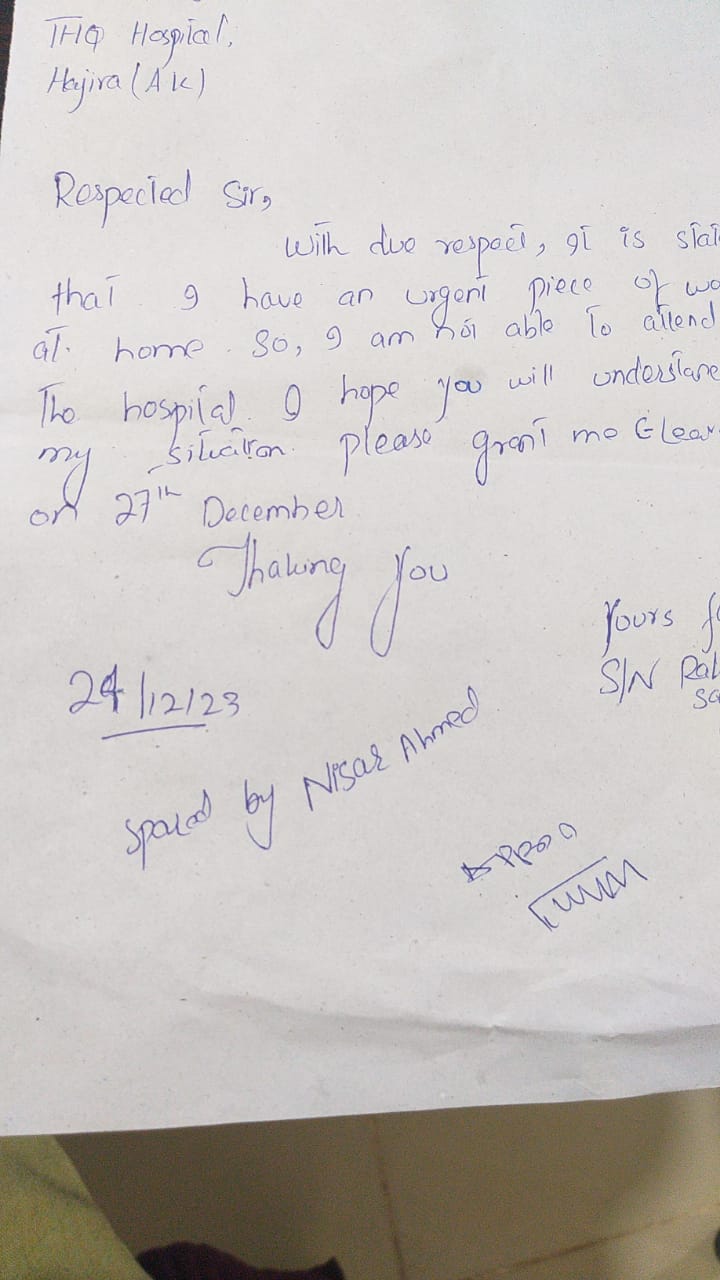 THQ Hospital,
Hajira (AK)
Respected Sir,
With due respect, It is stat
that I have an urgent piece of wo
at home. So, I am not able to attend
The hospital. I hope you will understan
my situation. please grant me C Leav
on 27th December
Thaking You
Yours f
S/N Rab
Sa
24/12/23
Spared by Nisar Ahmed